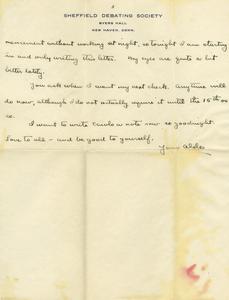 SHEFFIELD DEBATING SOCIETY
BYERS HALL
NEW HAVEN, CONN.
without working at night, so tonight I am starting
in and only writing this letter. My eyes are quite a bit
better lately.
You ask when I want my next check. Any time will
do now, although I do not actually require it until the 15th or
so.
I want to write a note now so goodnight.
Love to all - and be good to yourself.